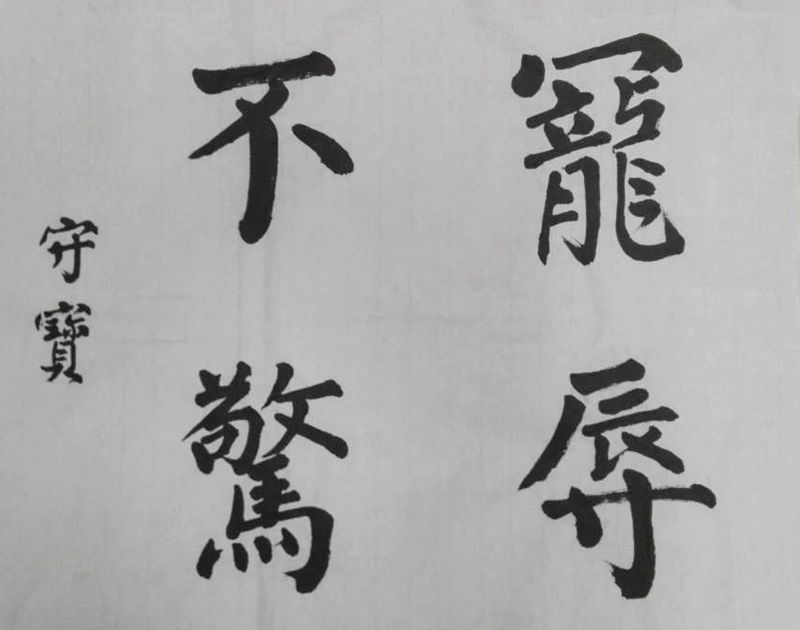 寵辱
不驚
守寶